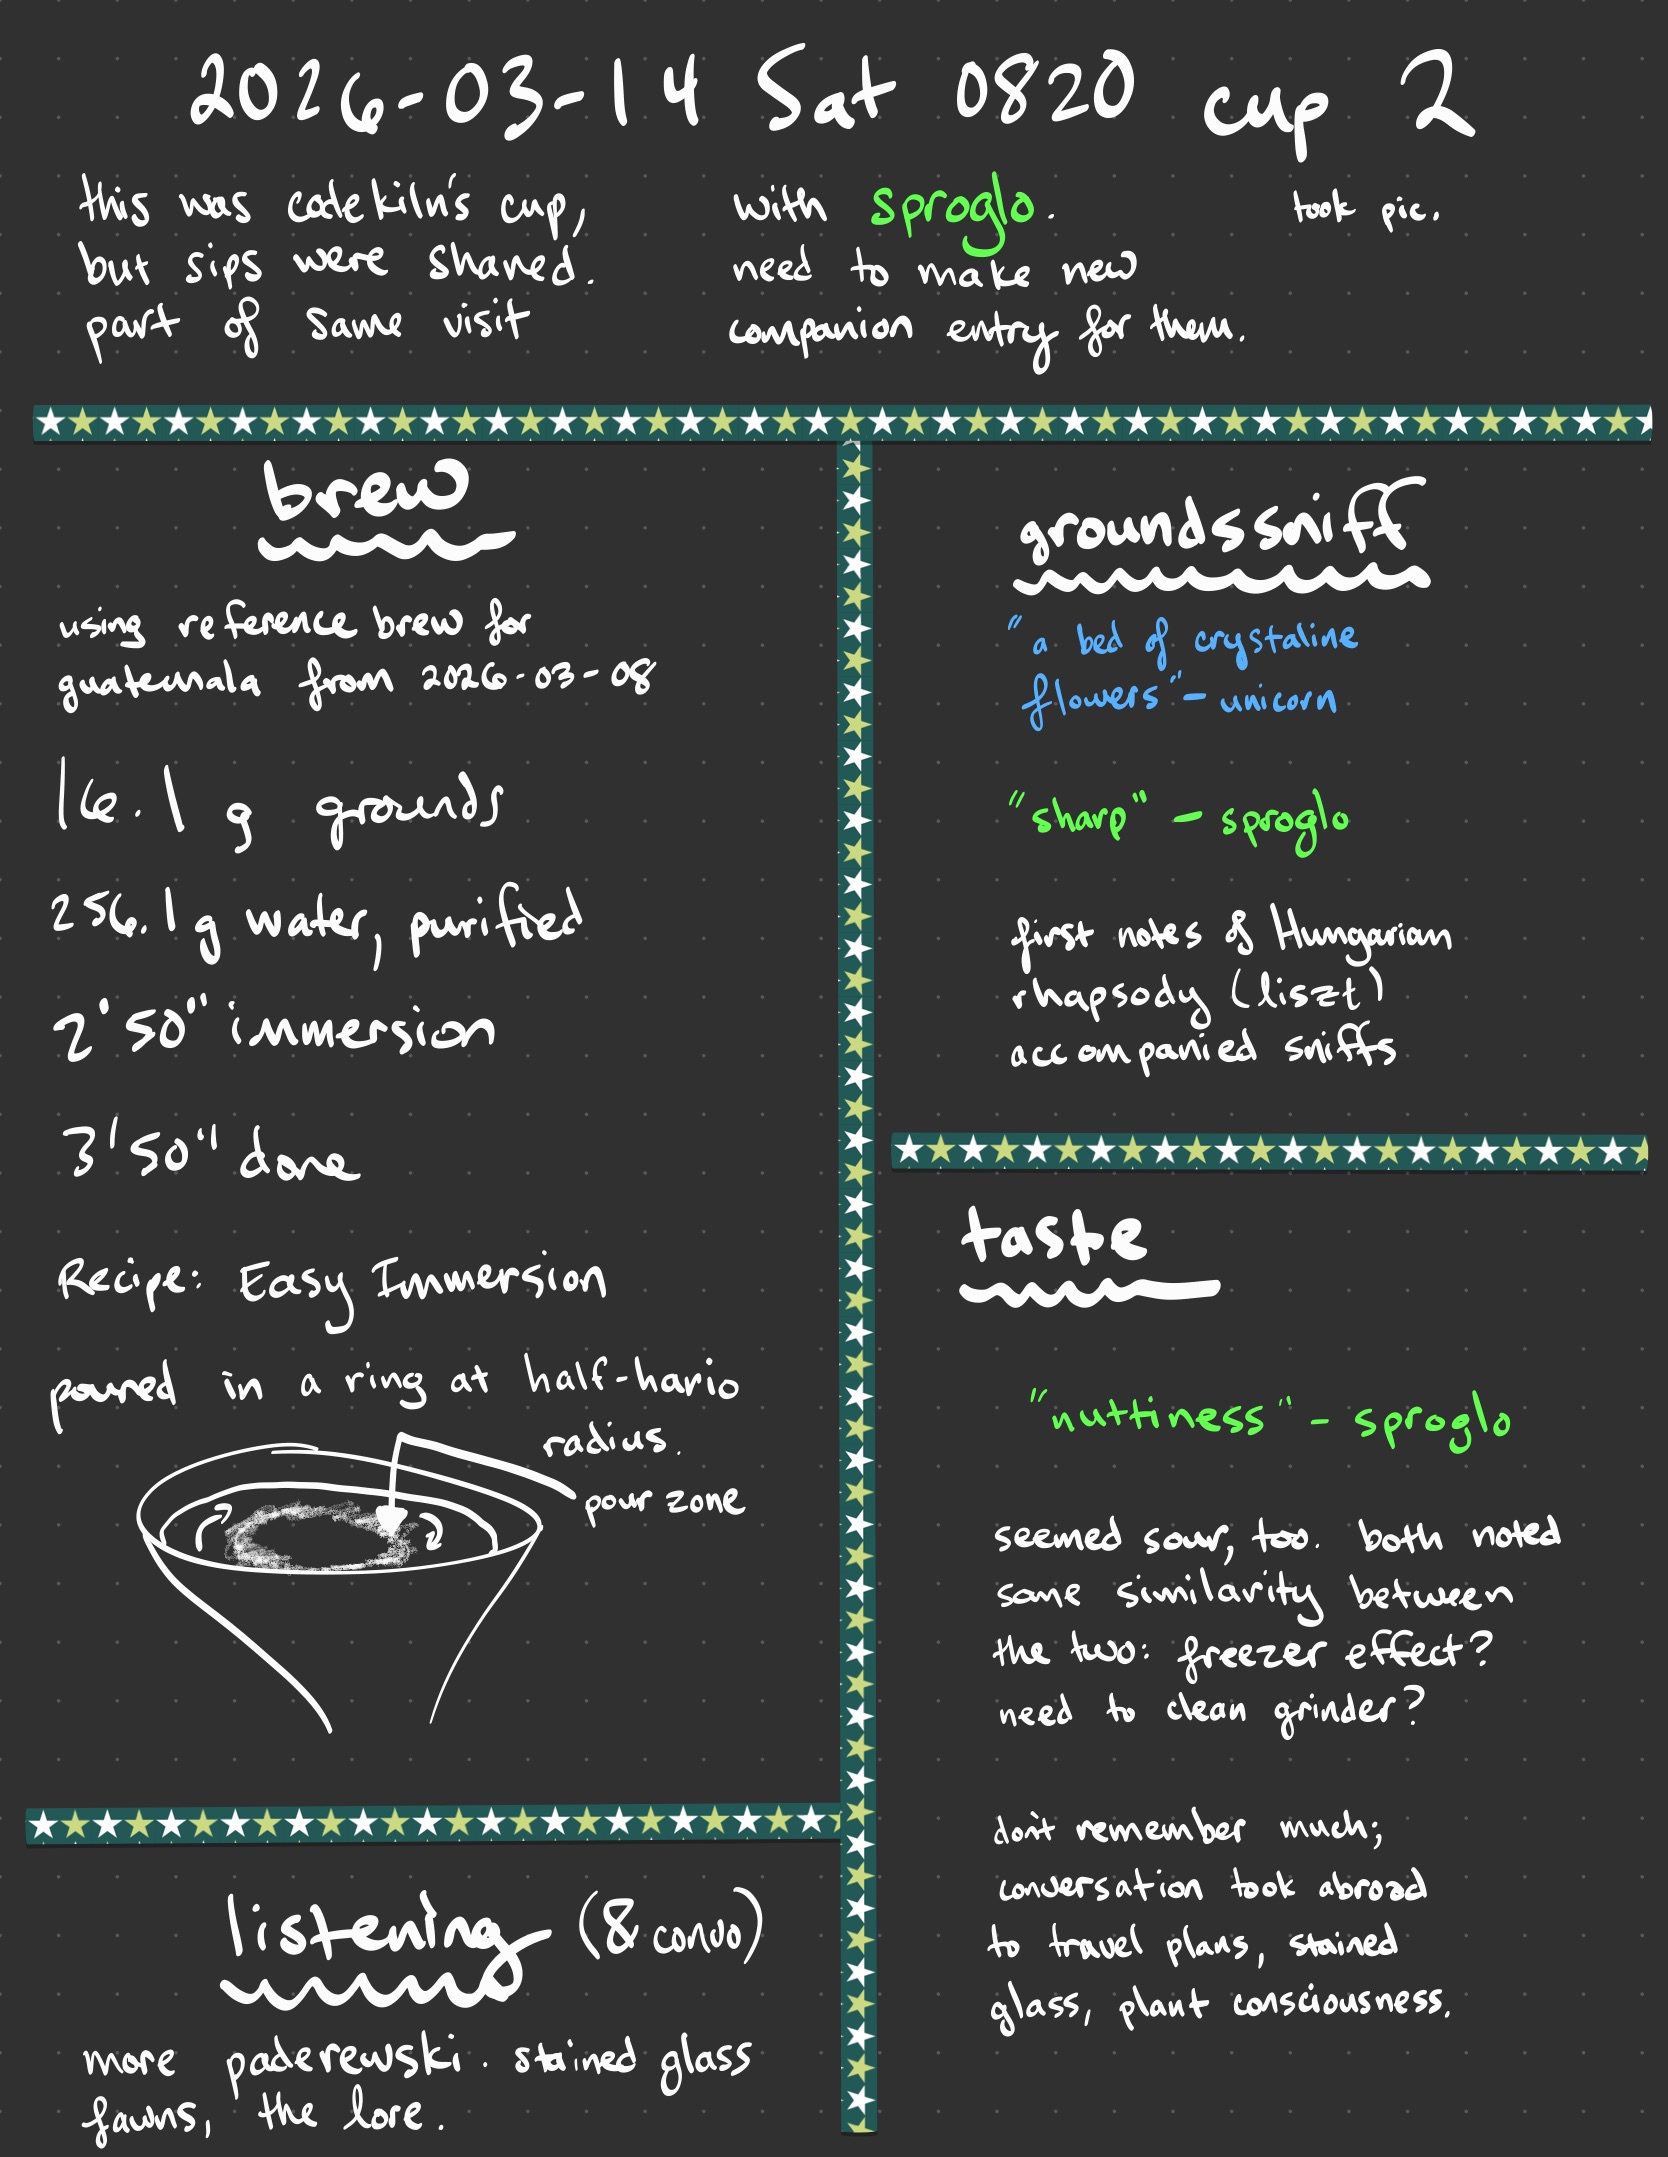 2026-03-14 Sat 0820 cup 2
this was codekiln's cup,
but sips were shared.
part of same visit
with sproglo.
need to make new
companion entry for them.
took pic.
brew
using reference brew for
guatemala from 2026-03-08
16.1 g grounds
256.1g water, purified
2'50" immersion
3'50" done
Recipe: Easy Immersion
poured in a ring at half-hario
radius.
pour zone
listening (& convo)
more paderewski. stained glass
fawns, the lore.
groundssniff
"a bed of crystaline
flowers" - unicorn
"sharp" - sproglo
first notes of Hungarian
rhapsody (liszt)
accompanied sniffs
taste
"nuttiness" - sproglo
seemed sour, too. both noted
some similarity between
the two: freezer effect?
need to clean grinder?
don't remember much;
conversation took abroad
to travel plans, stained
glass, plant consciousness.